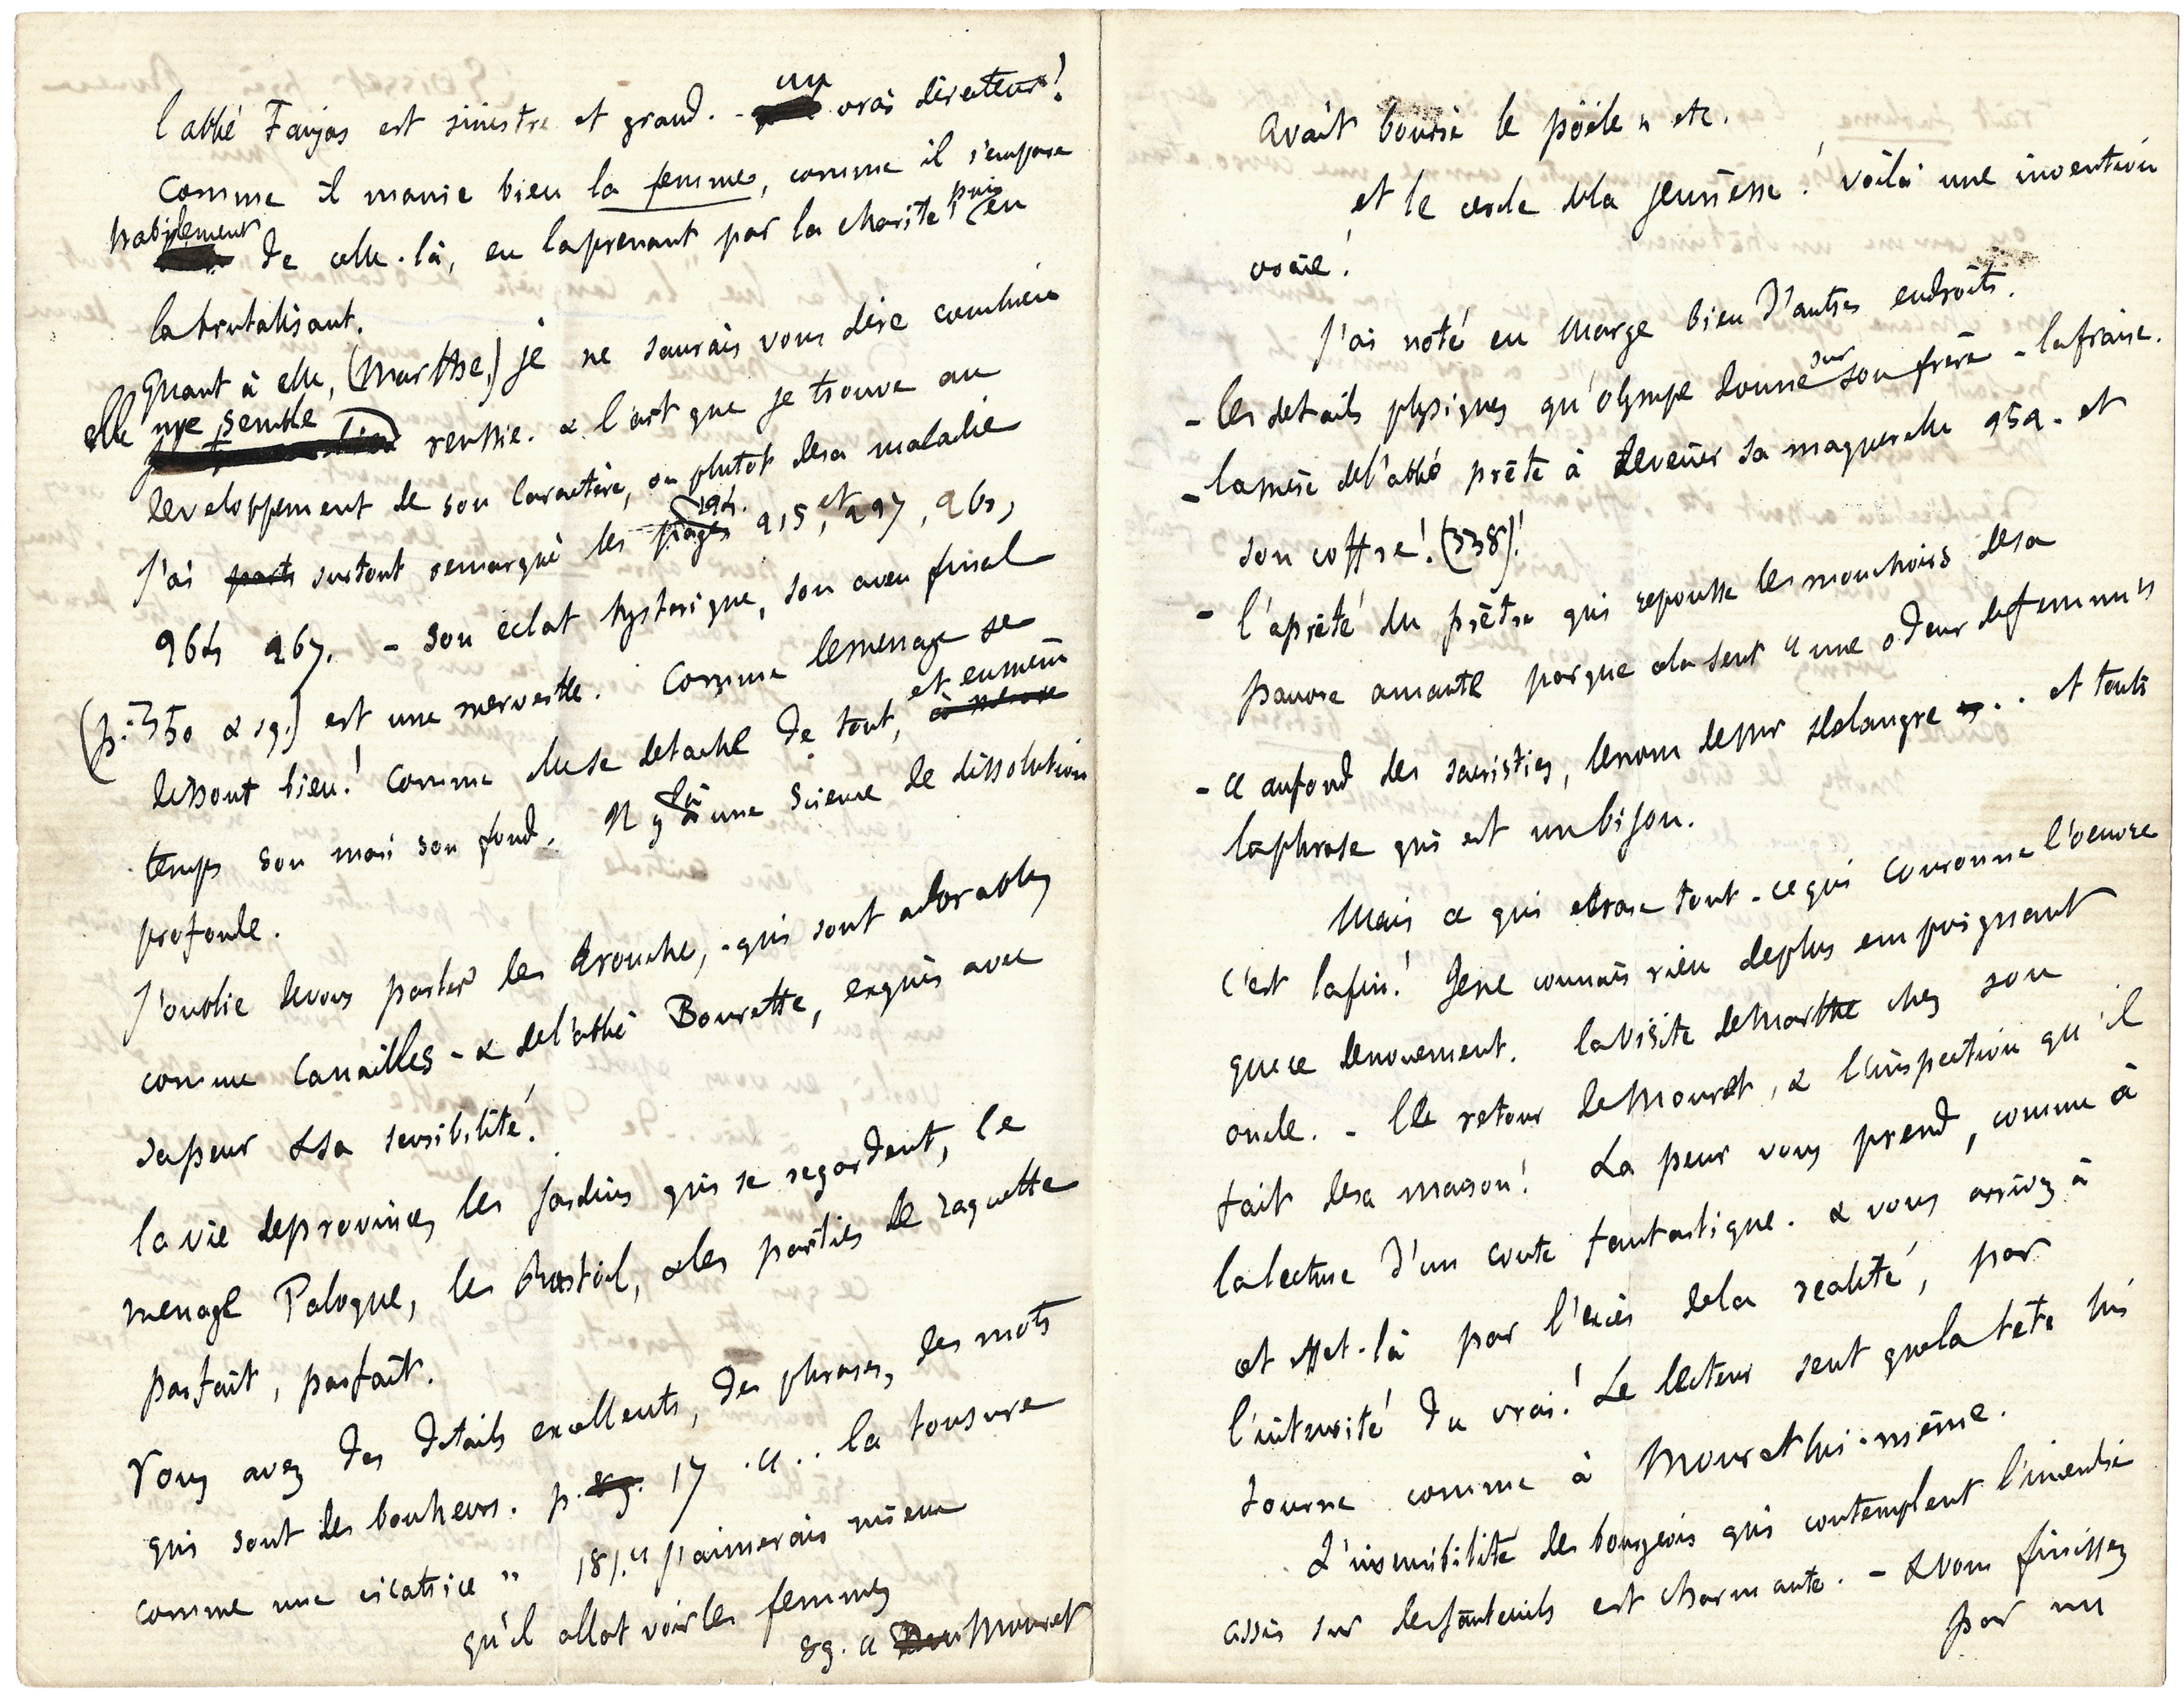 l'abbé Faujas est sinistre et grand. - un vrai directeur!
Comme il manie bien la femme, comme il s'empare
habilement de celle-là, en la prenant par la charité, puis en
la brutalisant.
Quant à elle, (Marthe,) je ne saurais vous dire combien
elle me semble reussie. & l'art que je trouve au
developpement de son caractère, ou plutôt de sa maladie
J'ai surtout remarqué les pages 194. 215, et 227, 261,
264 267. - son eclat hysterique, son aveu final
(p. 350 & sq.) est une merveille. Comme le menage se
dissout bien! Comme elle se detache de tout, et en même
temps son moi son fond. Il y a là une science de dissolution
profonde.
J'oublie de vous parler des Trouche, - qui sont adorables
comme Canailles - & de l'abbé Bourrette, exquis avec
sa peur & sa sensibilité.
la vie de province, les jardins qui se regardent, le
menage Paloque, les Rastoil, & les parties de raquette
parfait, parfait.
Vous avez des details excellents, des phrases, des mots
qui sont des bonheurs. p. 17 « .. la tonsure
comme une cicatrice » 181. « j'aimerais mieux
qu'il allat voir les femmes
89. « Mouret
avait bourré le poële » etc.
et le cercle de la jeunesse! voilà une invention
vraie!
J'ai noté en marge bien d'autres endroits.
- les details physiques qu'olympe donne sur son frère - la fraise.
- la mère de l'abbé prête à devenir sa maquerelle 252. et
son coffre! (338)!
- l'apreté du prêtre qui repousse les mouchoirs de sa
pauvre amante parque cela sent « une odeur de femme »
- « au fond des sacristies, le nom de Mr Delangre ... et toute
la phrase qui est un bijou.
Mais ce qui ecrase tout - ce qui couronne l'oeuvre
c'est la fin! Je ne connais rien de plus empoignant
que ce denouement. la visite de Marthe chez son
oncle. - le retour de Mouret, & l'inspection qu'il
fait de sa maison! La peur vous prend, comme à
la lecture d'un conte fantastique. & vous arrivez à
cet effet-là par l'excès de la realité, par
l'intensité du vrai! Le lecteur sent que la tête lui
tourne comme à Mouret lui-même.
L'insensibilité des bourgeois qui contemplent l'incendie
assis sur des fauteuils est charmante. - & vous finissez
par un